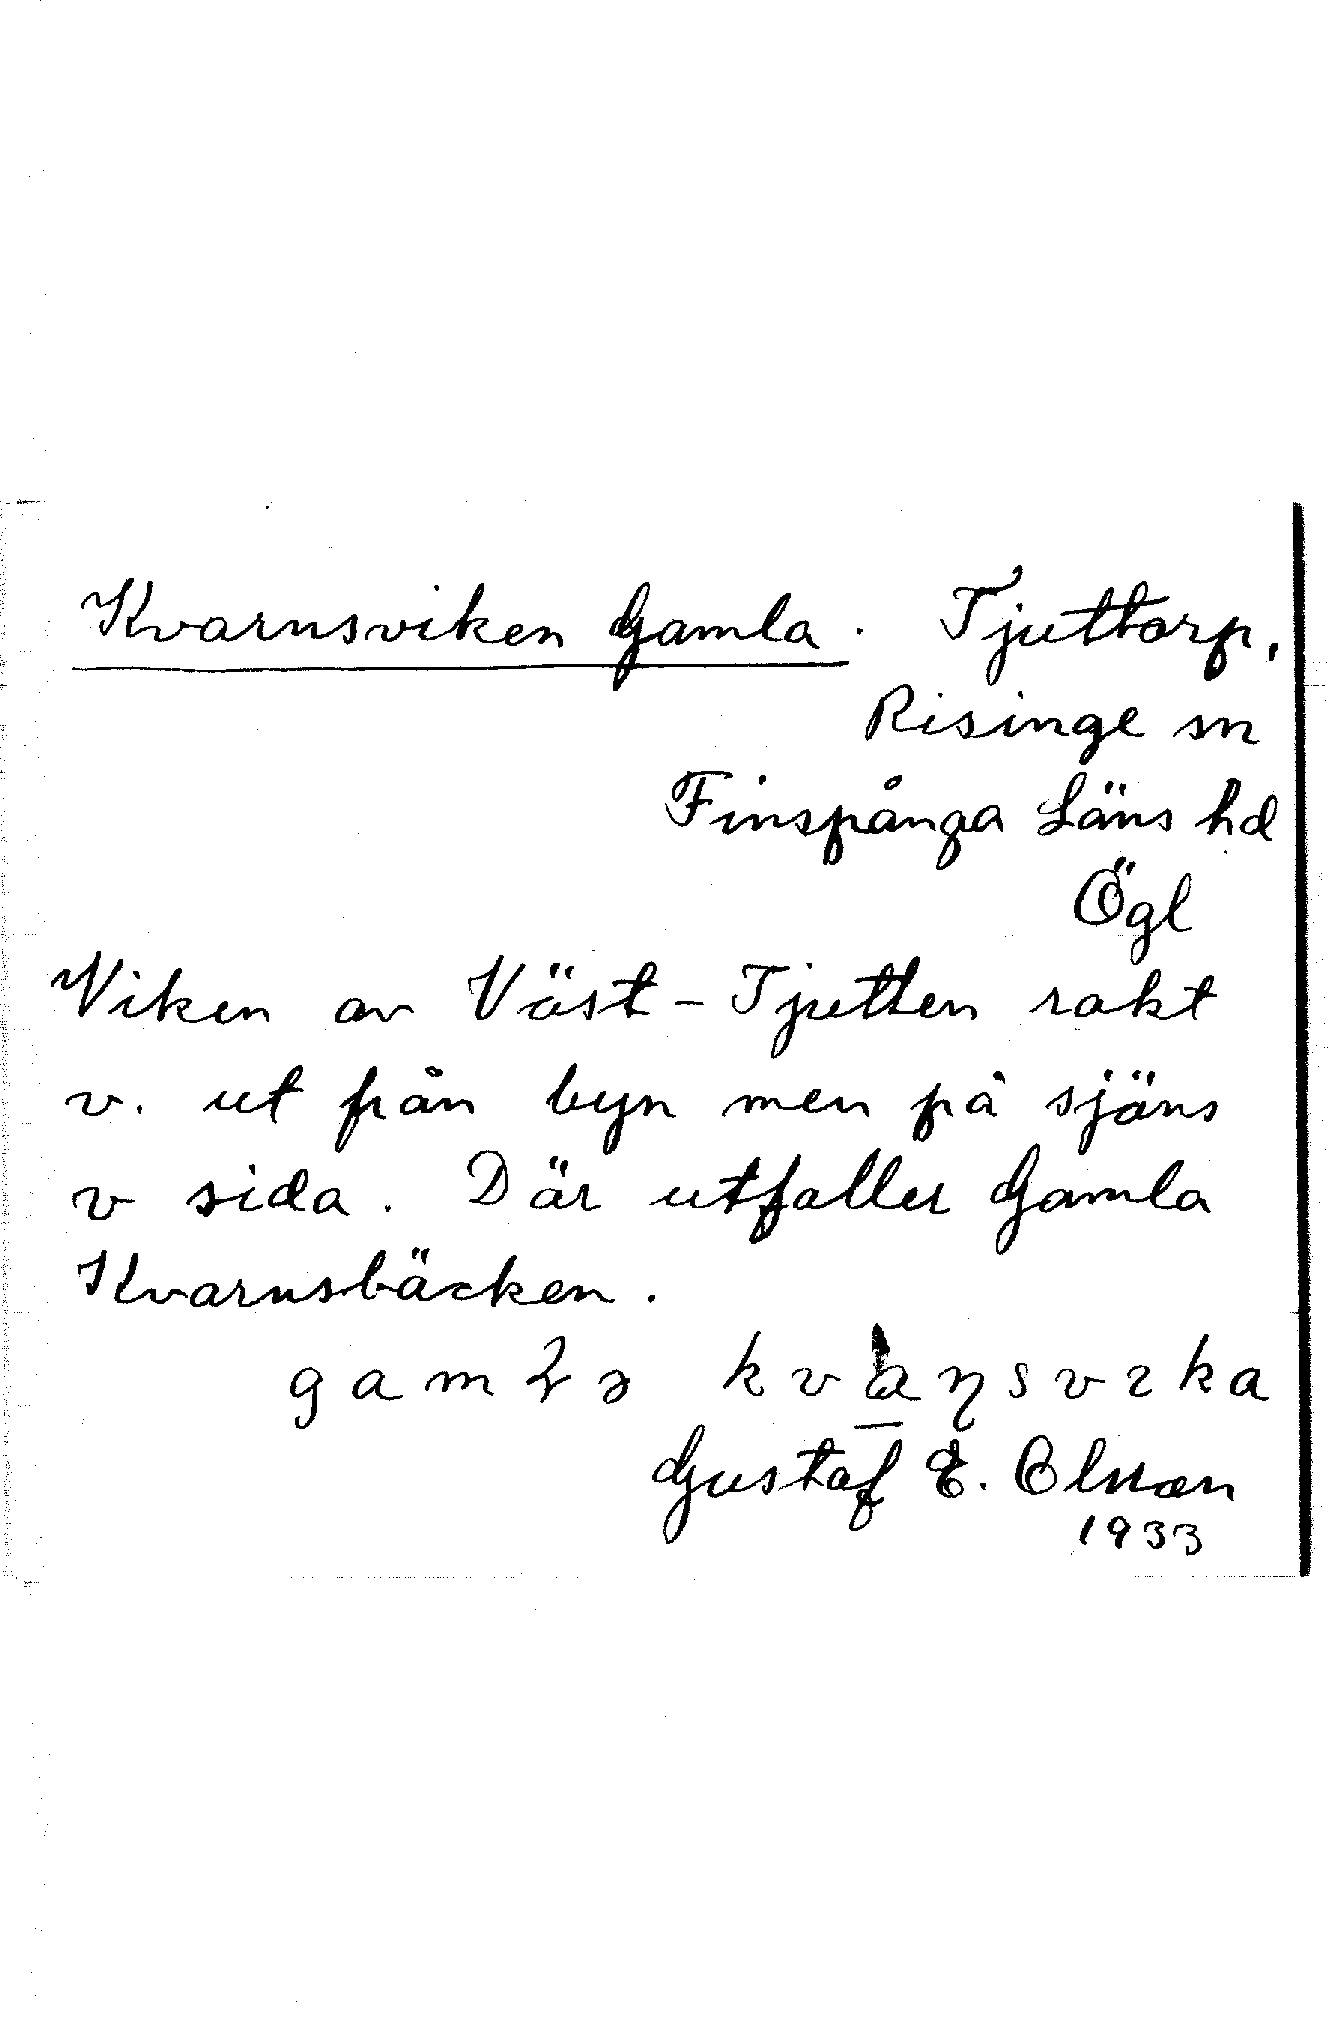 Kvarnsviken Gamla. Tjuttorp,
Risinge sn
Finspånga Läns hd
Ögl
Viken av Väst-Tjutten rakt
v. ut från byn men på sjäns
v sida. Där utfaller Gamla
Kvarnsbäcken.
gamla kvaɳsvika
Gustaf E. Olsson
1933